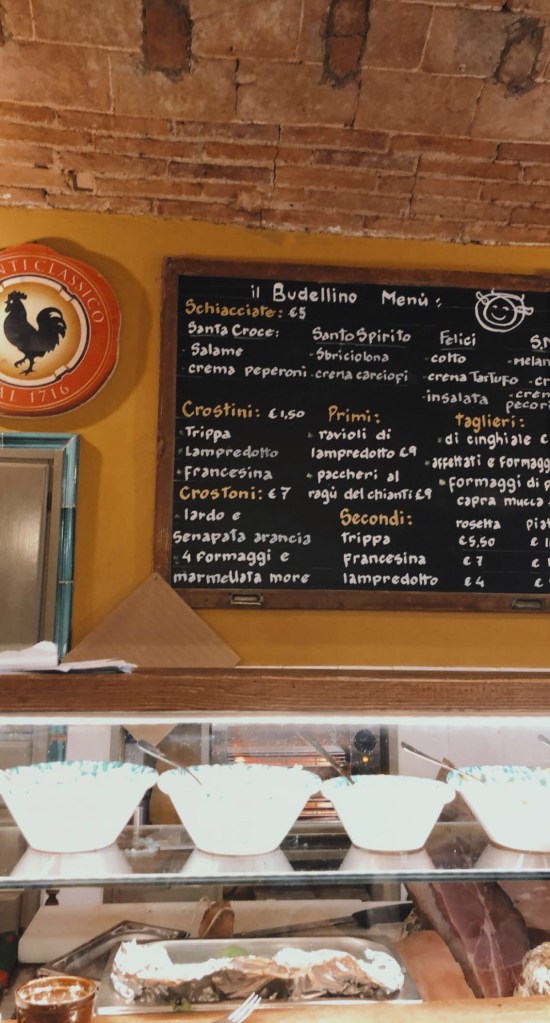 NTI CLASSICO
AL 1716
il Budellino Menù:
Schiacciate: €5
Santa Croce:
- Salame
- crema peperoni
Santo Spirito
- Sbriciolona
- crema carciofi
Felici
- cotto
- crema Tartufo
- insalata
pecori
Crostini: €1,50
Trippa
Lampredotto
Francesina
Crostoni: €7
lardo e
senapata arancia
4 Formaggi e
marmellata more
Primi:
ravioli di
lampredotto €9
paccheri al
ragù del chianti €9
Taglieri:
di cinghiale €
affettati e Formagg
Formaggi di p
capra mucca
Secondi:
rosetta piat
trippa €5,50 €
Francesina €7 €
lampredotto €4 €